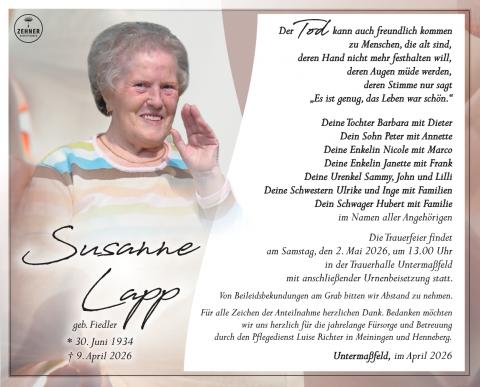 ZEHNER
Der Tod kann auch freundlich kommen
zu Menschen, die alt sind,
deren Hand nicht mehr festhalten will,
deren Augen müde werden,
deren Stimme nur sagt
„Es ist genug, das Leben war schön.“
Deine Tochter Barbara mit Dieter
Dein Sohn Peter mit Annette
Deine Enkelin Nicole mit Marco
Deine Enkelin Janette mit Frank
Deine Urenkel Sammy, John und Lilli
Deine Schwestern Ulrike und Inge mit Familien
Dein Schwager Hubert mit Familie
im Namen aller Angehörigen
Susanne
Lapp
geb. Fiedler
* 30. Juni 1934
† 9. April 2026
Die Trauerfeier findet
am Samstag, den 2. Mai 2026, um 13.00 Uhr
in der Trauerhalle Untermaßfeld
mit anschließender Urnenbeisetzung statt.
Von Beileidsbekundungen am Grab bitten wir Abstand zu nehmen.
Für alle Zeichen der Anteilnahme herzlichen Dank. Bedanken möchten
wir uns herzlich für die jahrelange Fürsorge und Betreuung
durch den Pflegedienst Luise Richter in Meiningen und Henneberg.
Untermaßfeld, im April 2026